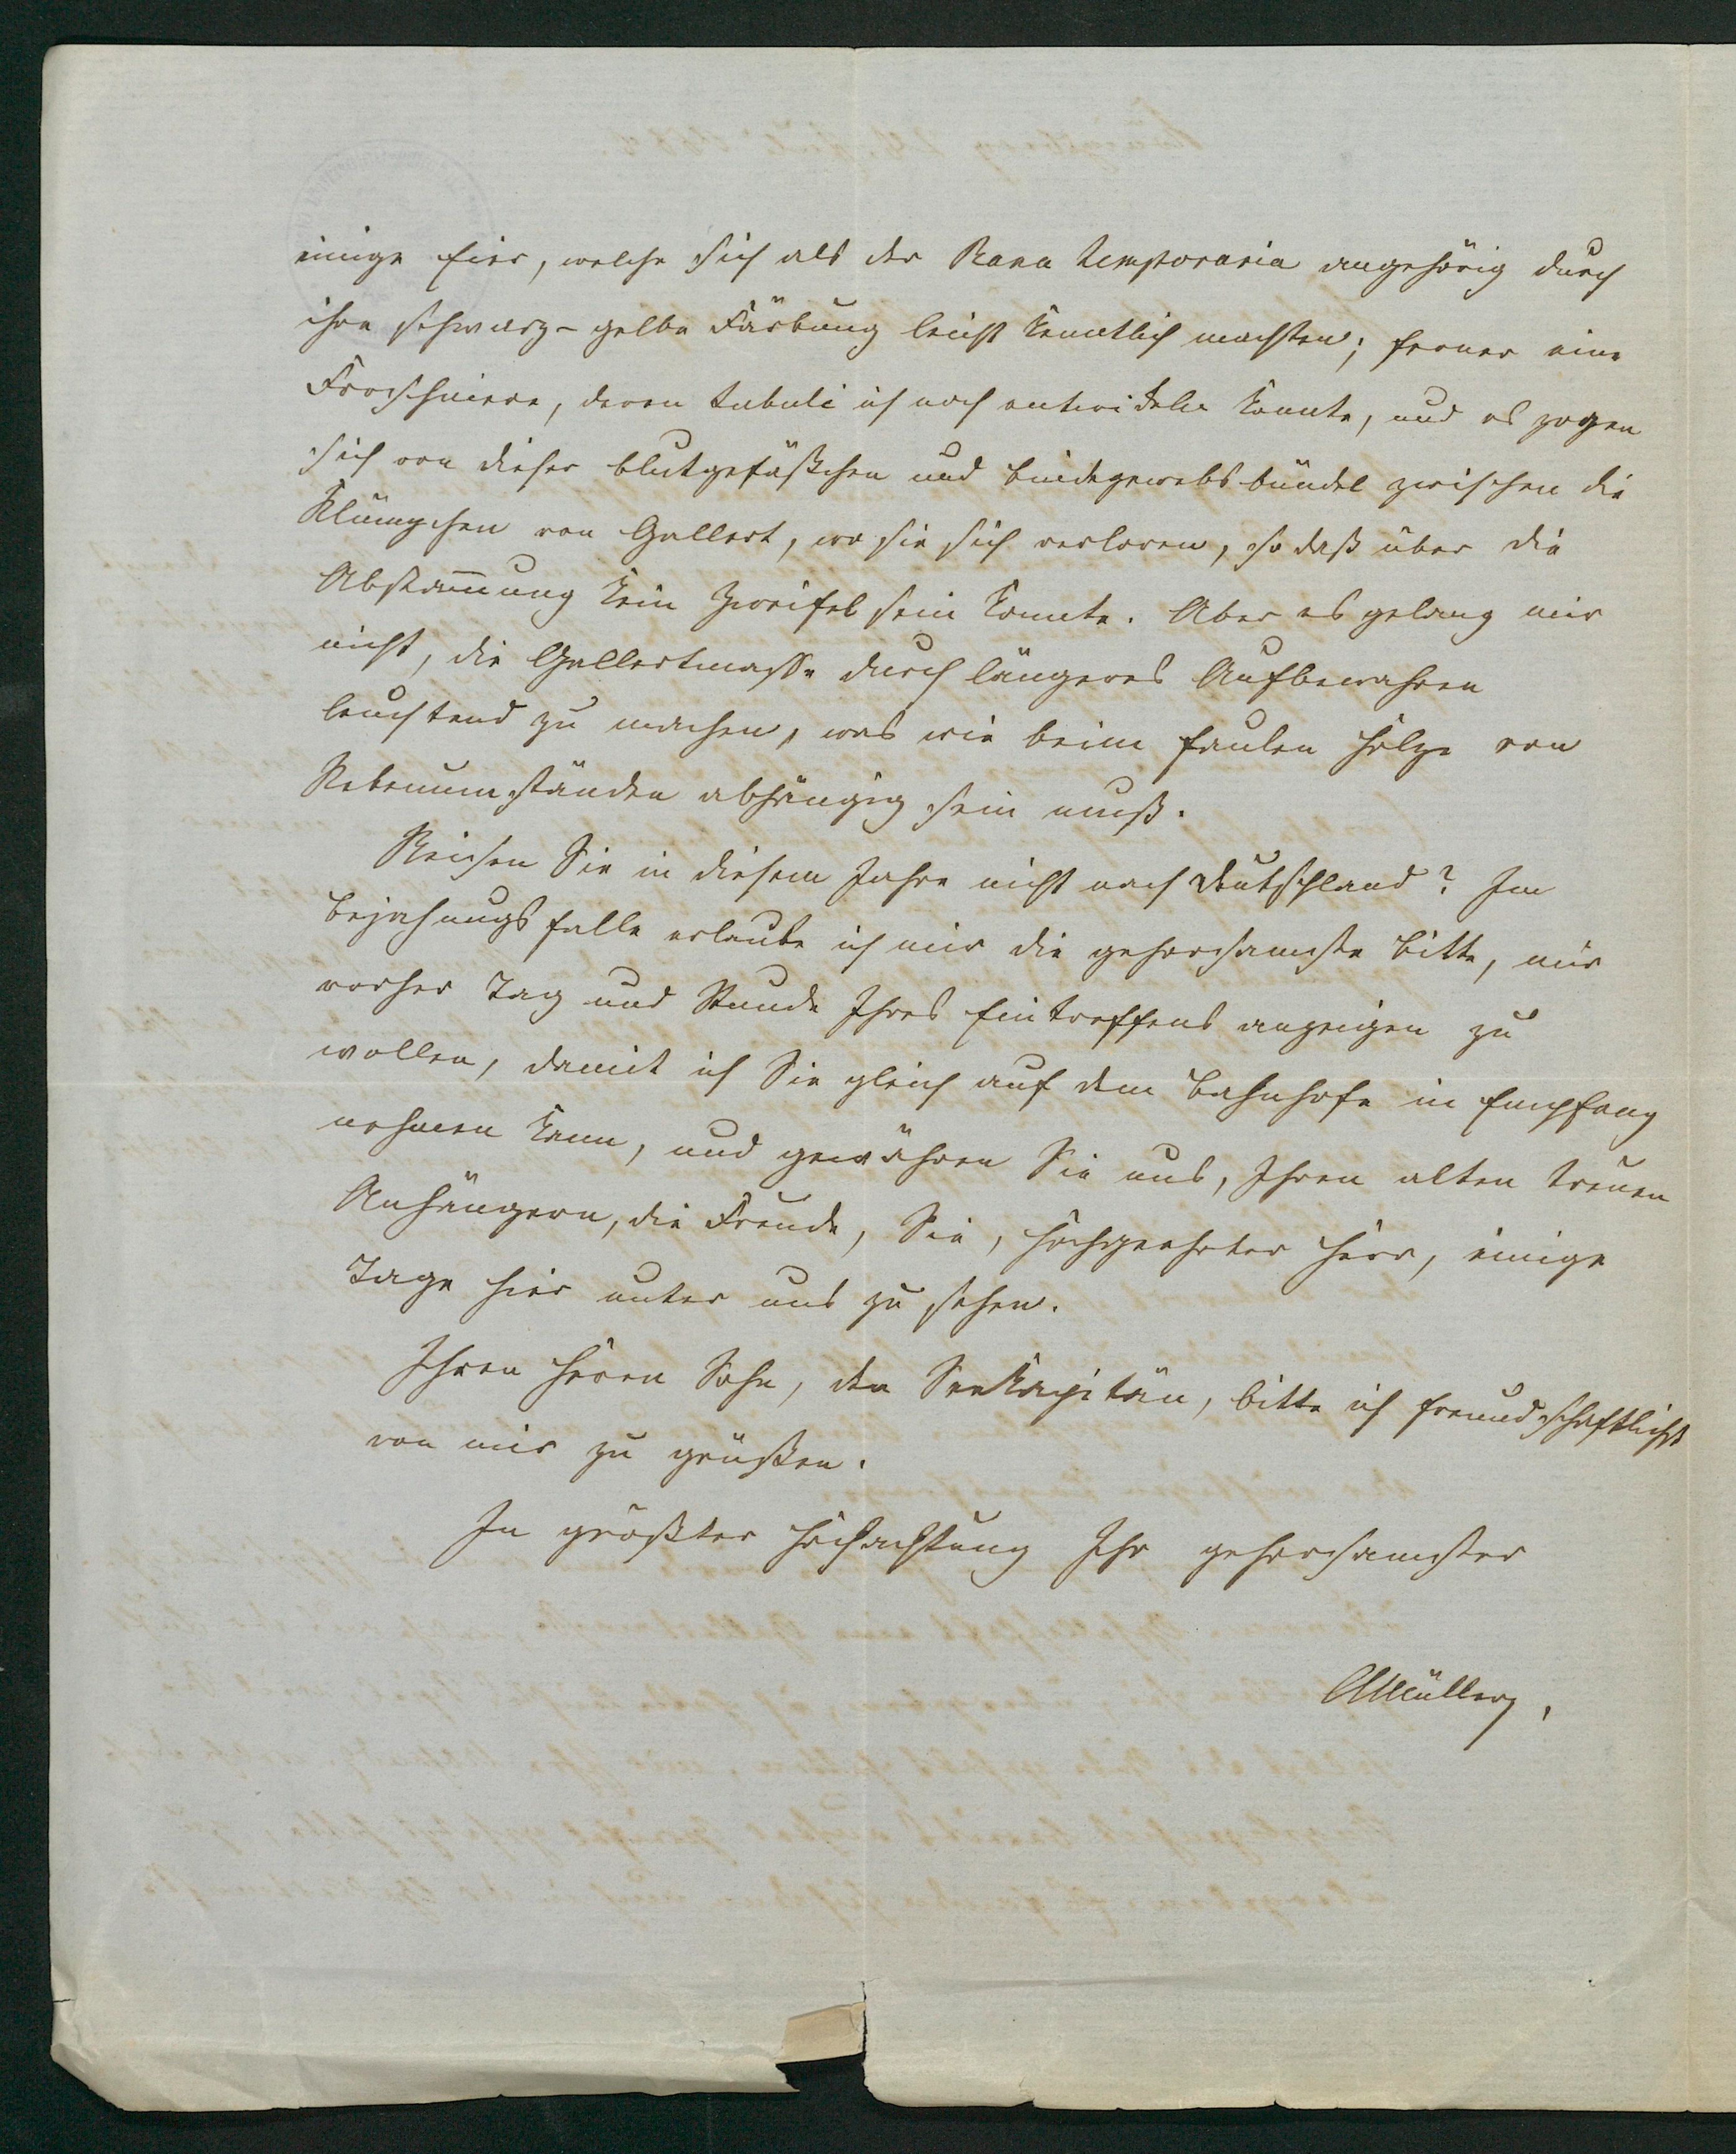 einige Eier, welche sich als der Rana temporaria angehörig durch
ihre schwarz-gelbe Färbung leicht kenntlich machten; ferner eine
Froschniere, deren tubuli ich noch entwickeln konnte, und es zogen
sich von dieser Blutgefäßchen und Bindegewebsbündel zwischen die
Klümpchen von Gallert, wo sie sich verloren, so daß über die
Abstam̅ung kein Zweifel sein konnte. Aber es gelang mir
nicht, die Gallertmasse durch längeres Aufbewahren
leuchtend zu machen, was wie beim faulen Holze von
Nebenumständen abhängig sein muß.
Reisen Sie in diesem Jahre nicht nach Deutschland? Im
Bejahungsfalle erlaube ich mir die gehorsamste Bitte, mir
vorher Tag und Stunde Ihres Eintreffens anzeigen zu
wollen, damit ich Sie gleich auf dem Bahnhofe in Empfang
nehmen kann, und gewähren Sie uns, Ihren alten treuen
Anhängern, die Freude, Sie, hochgeehrter Herr, einige
Tage hier unter uns zu sehen.
Ihren Herrn Sohn, den Seekapitän, bitte ich freundschaftlichst
von mir zu grüßen.
In größter Hochachtung Ihr gehorsamster
AMüller,